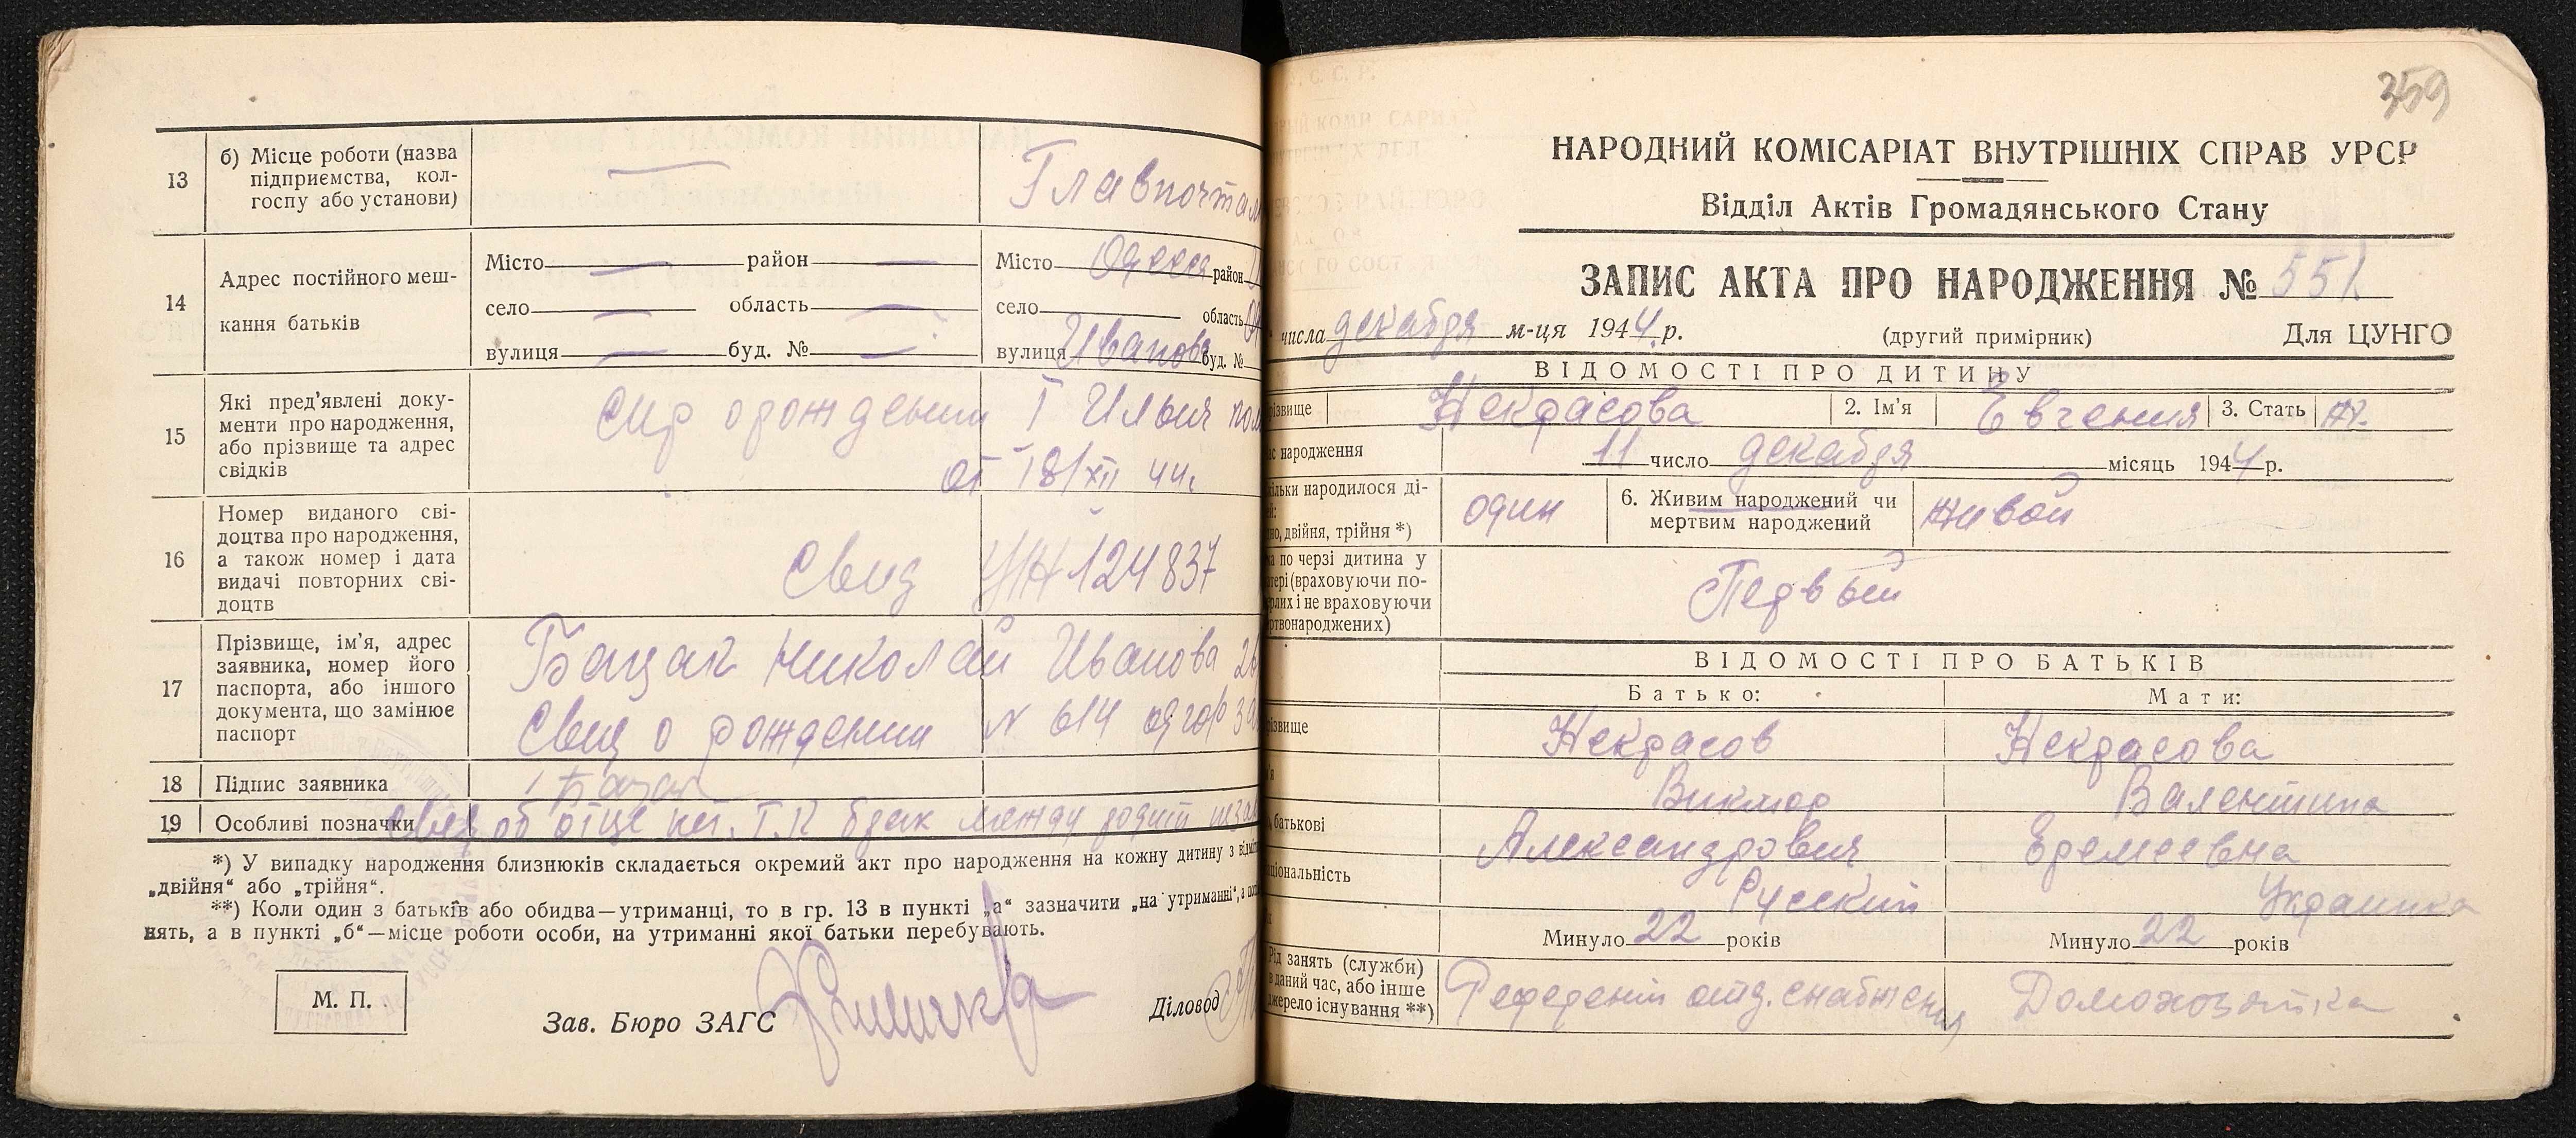 13
б) Місце роботи (назва
підприємства, кол-
госпу або установи)
—
Главпочтам
14
Адрес постійного меш-
кання батьків
Місто — район —
село — область —
вулиця — буд. № —
Місто Одесса район
село область
вулиця Иванова буд. №
15
Які пред'явлені доку-
менти про народження,
або прізвище та адрес
свідків
спр о рождении I Илыч пол
от 18/XII 44.
16
Номер виданого сві-
доцтва про народження,
а також номер і дата
видачі повторних сві-
доцтв
Свид УН 124837
17
Прізвище, ім'я, адрес
заявника, номер його
паспорта, або іншого
документа, що замінює
паспорт
Бацак Николай Иванова 26
Свид о рождении N 614
18
Підпис заявника
Бацак
19
Особливі позначки
свед об отце нет. Т.К брак между родит
*) У випадку народження близнюків складається окремий акт про народження на кожну дитину з
„двійня“ або „трійня“.
**) Коли один з батьків або обидва—утриманці, то в гр. 13 в пункті „а“ зазначити „на утриманні“, а
нять, а в пункті „б“—місце роботи особи, на утриманні якої батьки перебувають.
М. П.
Зав. Бюро ЗАГС
Діловод
359
НАРОДНИЙ КОМІСАРІАТ ВНУТРІШНІХ СПРАВ УРСР
Відділ Актів Громадянського Стану
ЗАПИС АКТА ПРО НАРОДЖЕННЯ № 551
числа декабря м-ця 1944 р.
(другий примірник)
Для ЦУНГО
ВІДОМОСТІ ПРО ДИТИНУ
різвище Некрасова 2. Ім'я Евгения 3. Стать ж.
ас народження 11 число декабря місяць 1944 р.
кільки народилося ді-
но, двійня, трійня *)
один
6. Живим народжений чи
мертвим народжений
живой
ка по черзі дитина у
тері (враховуючи по-
ерлих і не враховуючи
ертвонароджених)
Первый
ВІДОМОСТІ ПРО БАТЬКІВ
Батько:
Мати:
різвище
Некрасов
Некрасова
Виктор
Валентина
батькові
Александрович
Еремеевна
ціональність
Русский
Украинка
Минуло 22 років
Минуло 22 років
Рід занять (служби)
в даний час, або інше
джерело існування **)
Референт отд. снабжения
Домохозяйка